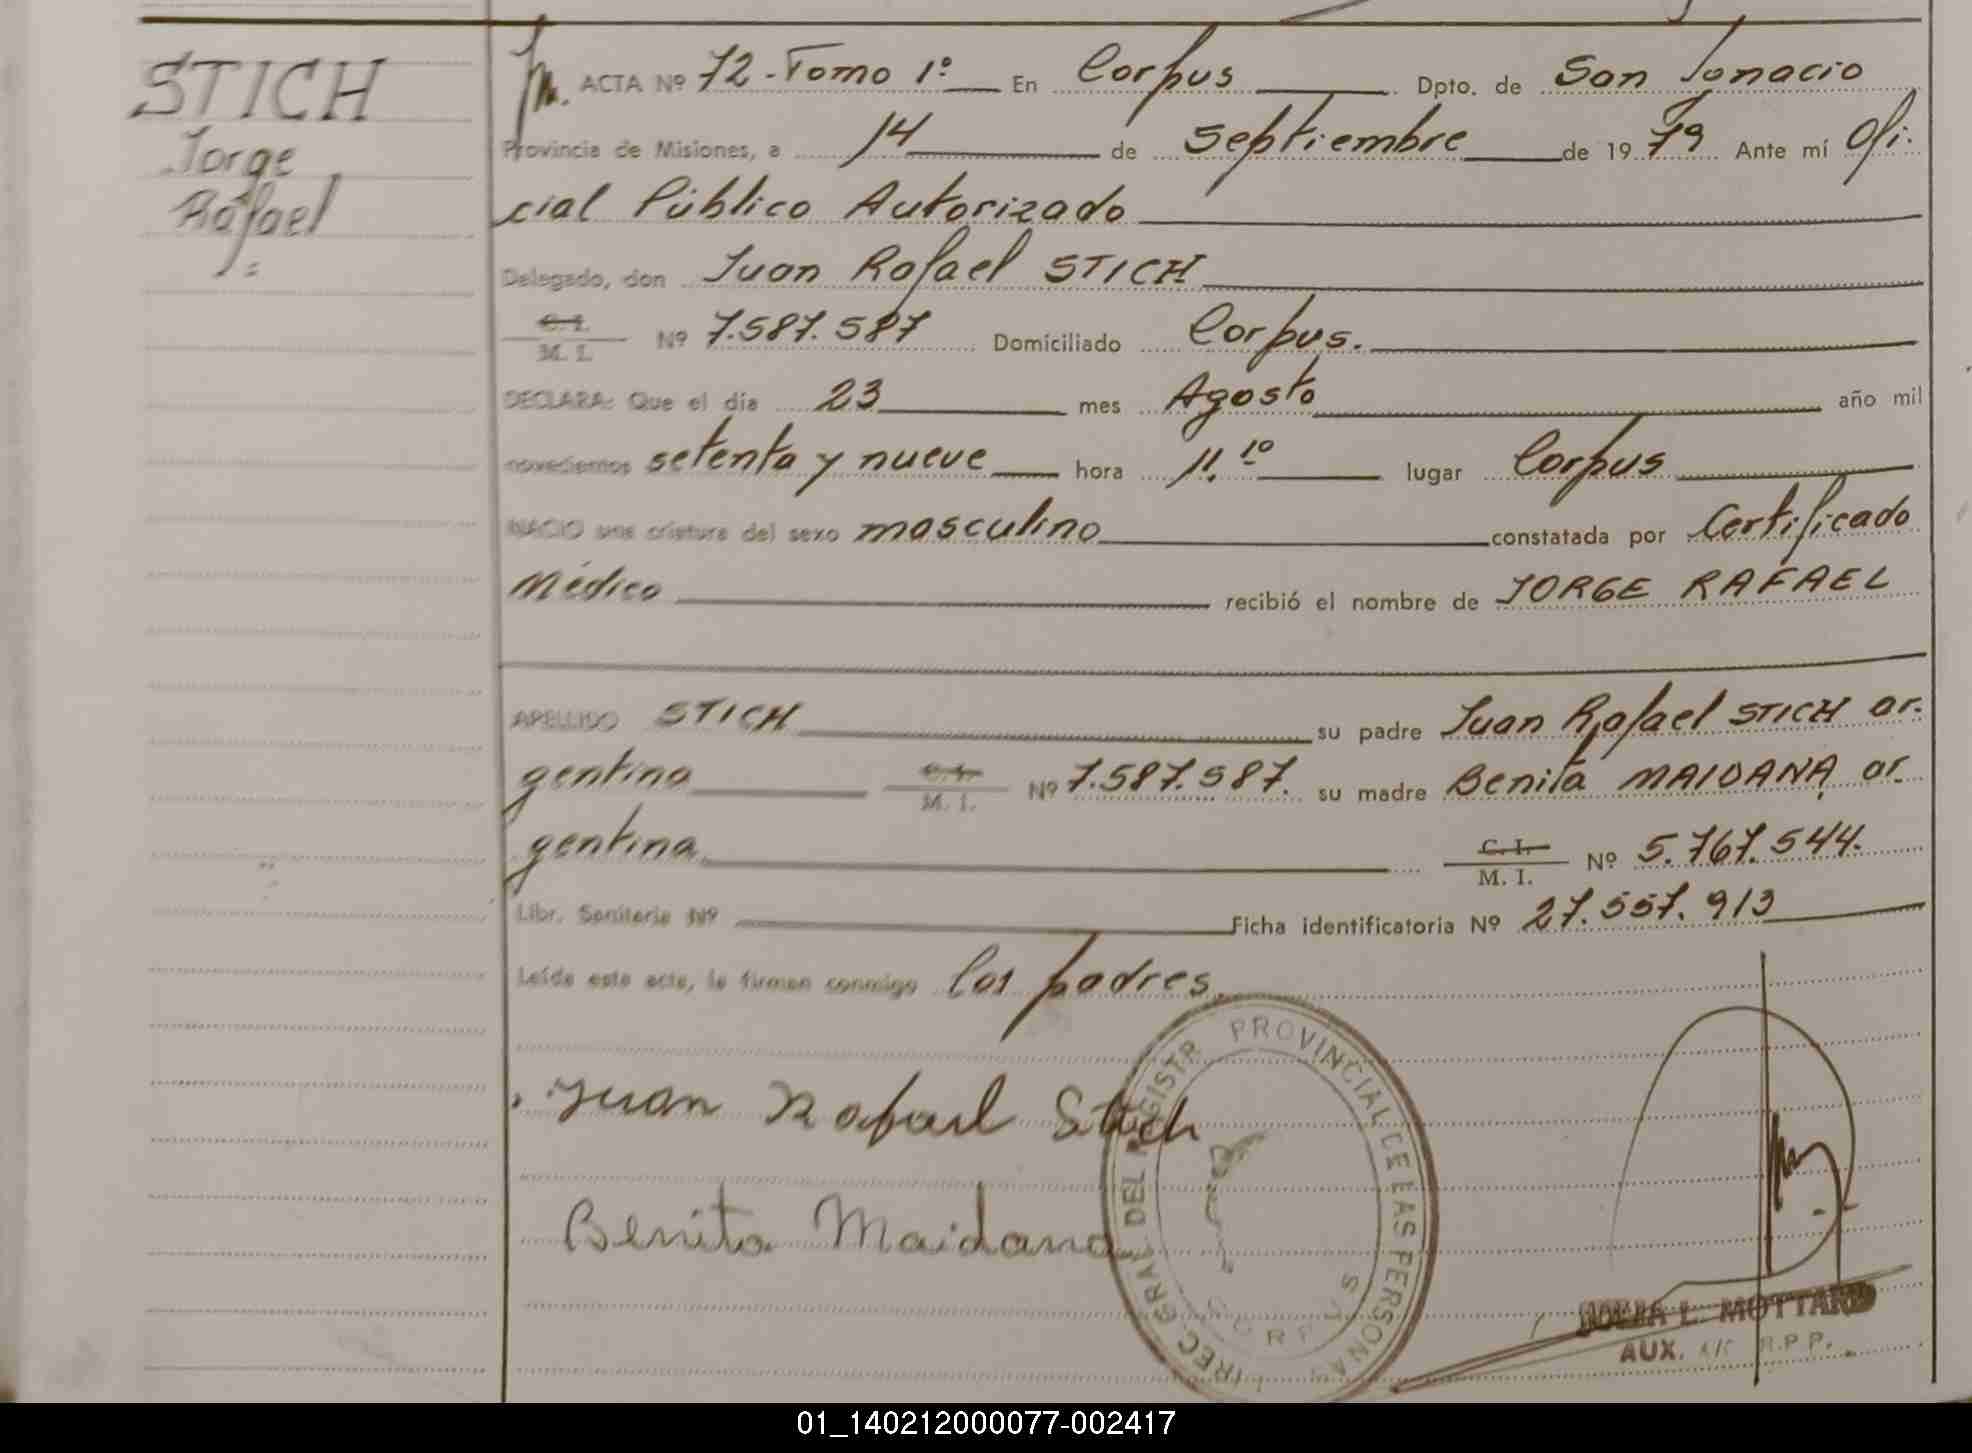 STICH
Jorge
Rafael
ACTA Nº 72 - Tomo 1º En Corpus Dpto. de San Ignacio
Provincia de Misiones, a 14 de Septiembre de 1979 Ante mí Ofi-
cial Público Autorizado
Delegado, don Juan Rafael STICH
C. I.
M. I. Nº 7.587.587 Domiciliado Corpus.
DECLARA: Que el día 23 mes Agosto año mil
novecientos setenta y nueve hora 11.10 lugar Corpus
NACIO una criatura del sexo masculino constatada por Certificado
Médico recibió el nombre de JORGE RAFAEL
APELLIDO STICH su padre Juan Rafael STICH ar-
gentino C. I.
M. I. Nº 7.587.587. su madre Benita MAIDANA ar-
gentina C. I.
M. I. Nº 5.767.544.
Libr. Sanitaria Nº Ficha identificatoria Nº 27.557.913
Leída este acta, la firman conmigo los padres.
Juan Rafael Stich
Benita Maidana
DIREC. GRAL. DEL REGISTR. PROVINCIAL DE LAS PERSONAS
CORPUS
L. MOTTARD
AUX. A/C R.P.P.
01_140212000077-002417